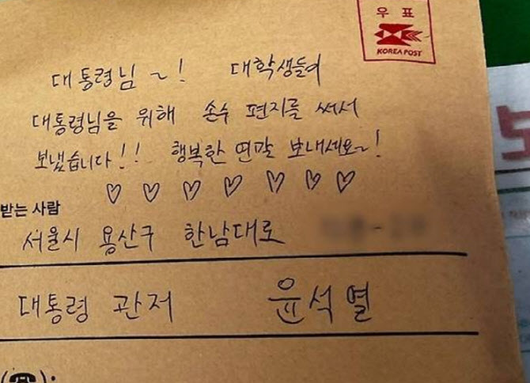 우 표
KOREA POST
대통령님 ~! 대학생들이
대통령님을 위해 손수 편지를 써서
보냈습니다!! 행복한 연말 보내세요~!
♡ ♡ ♡ ♡ ♡ ♡ ♡
받는 사람
서울시 용산구 한남대로
대통령 관저 윤석열
(☎):